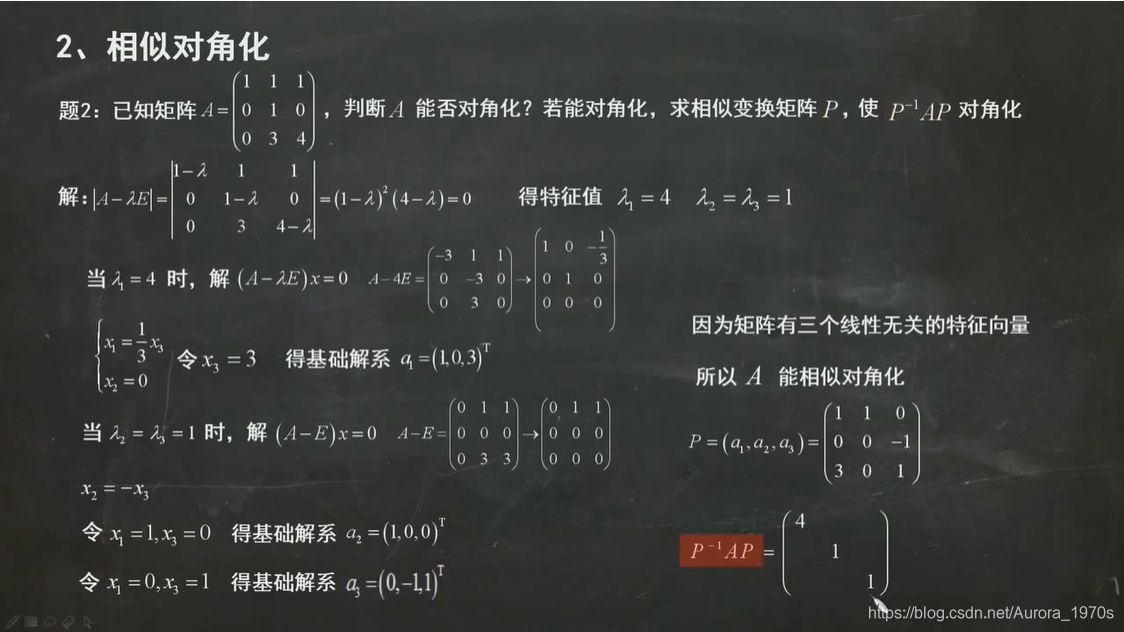 2、相似对角化
题2：已知矩阵 A = \begin{pmatrix} 1 & 1 & 1 \\ 0 & 1 & 0 \\ 0 & 3 & 4 \end{pmatrix}，判断 A 能否对角化？若能对角化，求相似变换矩阵 P，使 P^{-1}AP 对角化
解：|A-λE| = \begin{vmatrix} 1-λ & 1 & 1 \\ 0 & 1-λ & 0 \\ 0 & 3 & 4-λ \end{vmatrix} = (1-λ)^2(4-λ)=0 得特征值 λ_1=4 λ_2=λ_3=1
当 λ_1=4 时，解 (A-λE)x=0 A-4E = \begin{pmatrix} -3 & 1 & 1 \\ 0 & -3 & 0 \\ 0 & 3 & 0 \end{pmatrix} → \begin{pmatrix} 1 & 0 & -\frac{1}{3} \\ 0 & 1 & 0 \\ 0 & 0 & 0 \end{pmatrix}
\begin{cases} x_1=\frac{1}{3}x_3 \\ x_2=0 \end{cases} 令 x_3=3 得基础解系 a_1=(1,0,3)^T
当 λ_2=λ_3=1 时，解 (A-E)x=0 A-E = \begin{pmatrix} 0 & 1 & 1 \\ 0 & 0 & 0 \\ 0 & 3 & 3 \end{pmatrix} → \begin{pmatrix} 0 & 1 & 1 \\ 0 & 0 & 0 \\ 0 & 0 & 0 \end{pmatrix}
x_2=-x_3
令 x_1=1,x_3=0 得基础解系 a_2=(1,0,0)^T
令 x_1=0,x_3=1 得基础解系 a_3=(0,-1,1)^T
因为矩阵有三个线性无关的特征向量
所以 A 能相似对角化
P=(a_1,a_2,a_3)= \begin{pmatrix} 1 & 1 & 0 \\ 0 & 0 & -1 \\ 3 & 0 & 1 \end{pmatrix}
P^{-1}AP = \begin{pmatrix} 4 & & \\ & 1 & \\ & & 1 \end{pmatrix}
https://blog.csdn.net/Aurora_1970s